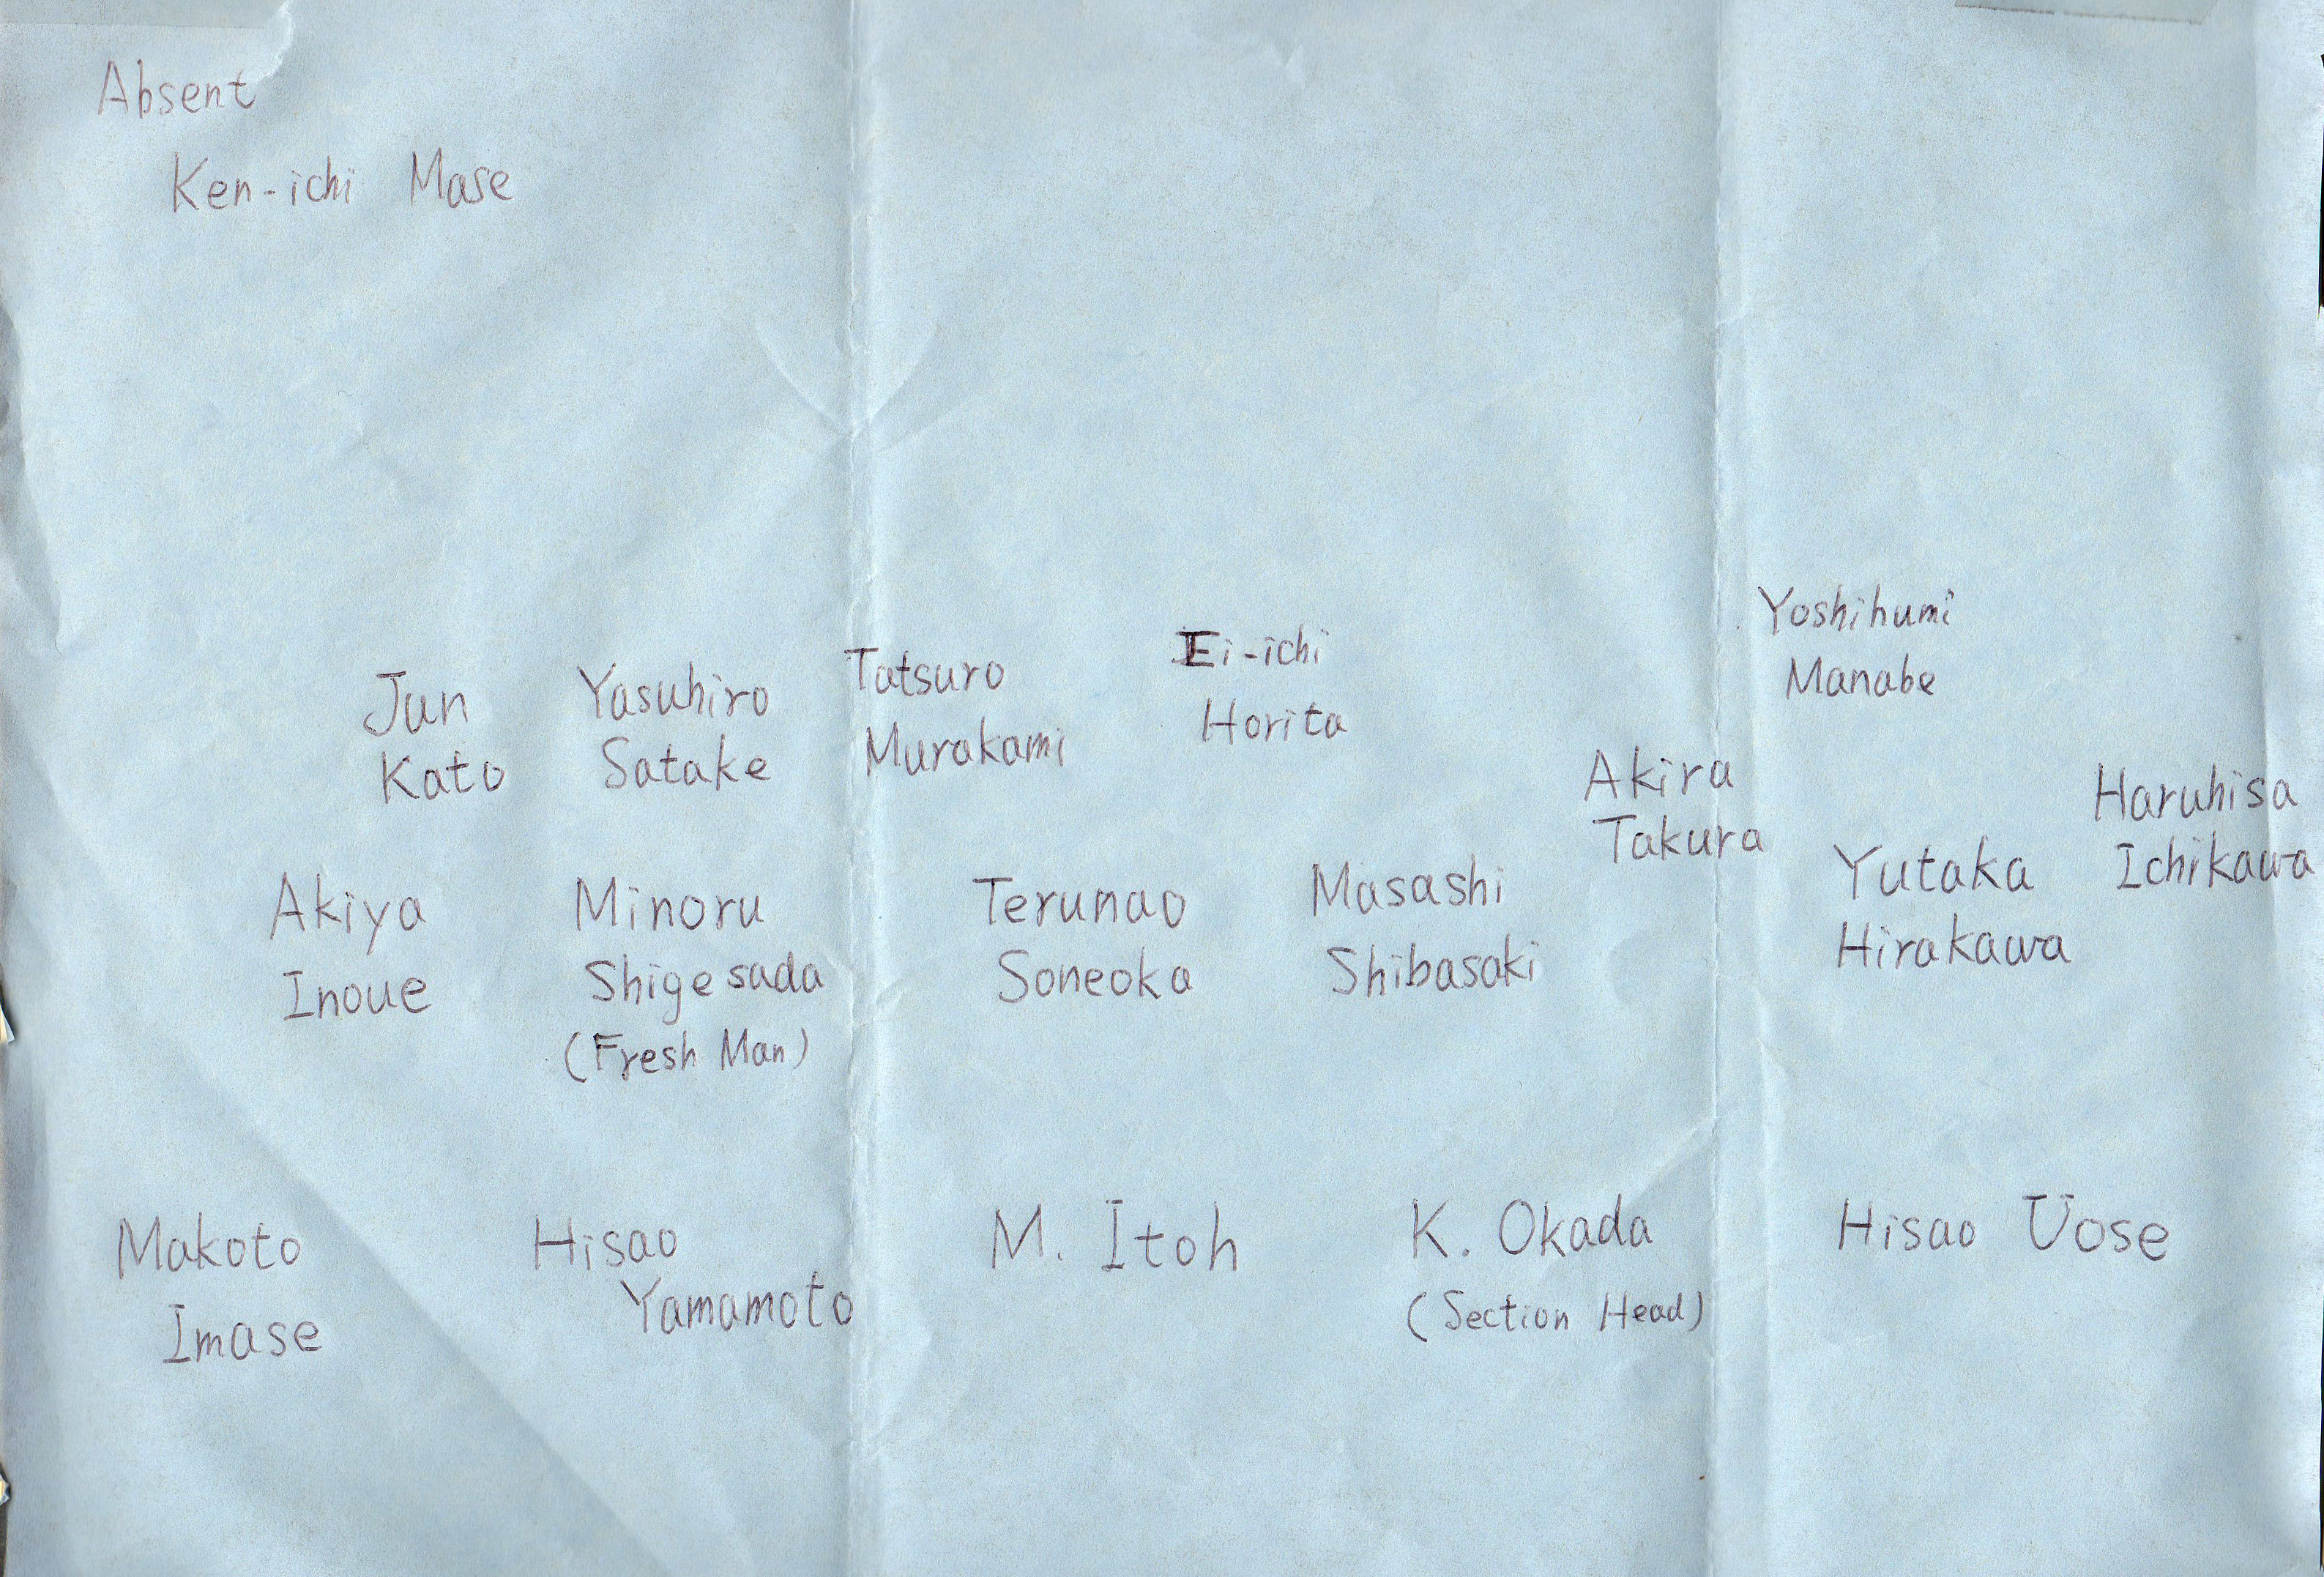 Absent
Ken-ichi Mase
Yoshihumi
Manabe
Jun
Kato
Yasuhiro
Satake
Tatsuro
Murakami
Ei-ichi
Horita
Akira
Takura
Haruhisa
Ichikawa
Akiya
Inoue
Minoru
Shigesada
(Fresh Man)
Terunao
Soneoka
Masashi
Shibasaki
Yutaka
Hirakawa
Makoto
Imase
Hisao
Yamamoto
M. Itoh
K. Okada
(Section Head)
Hisao Uose